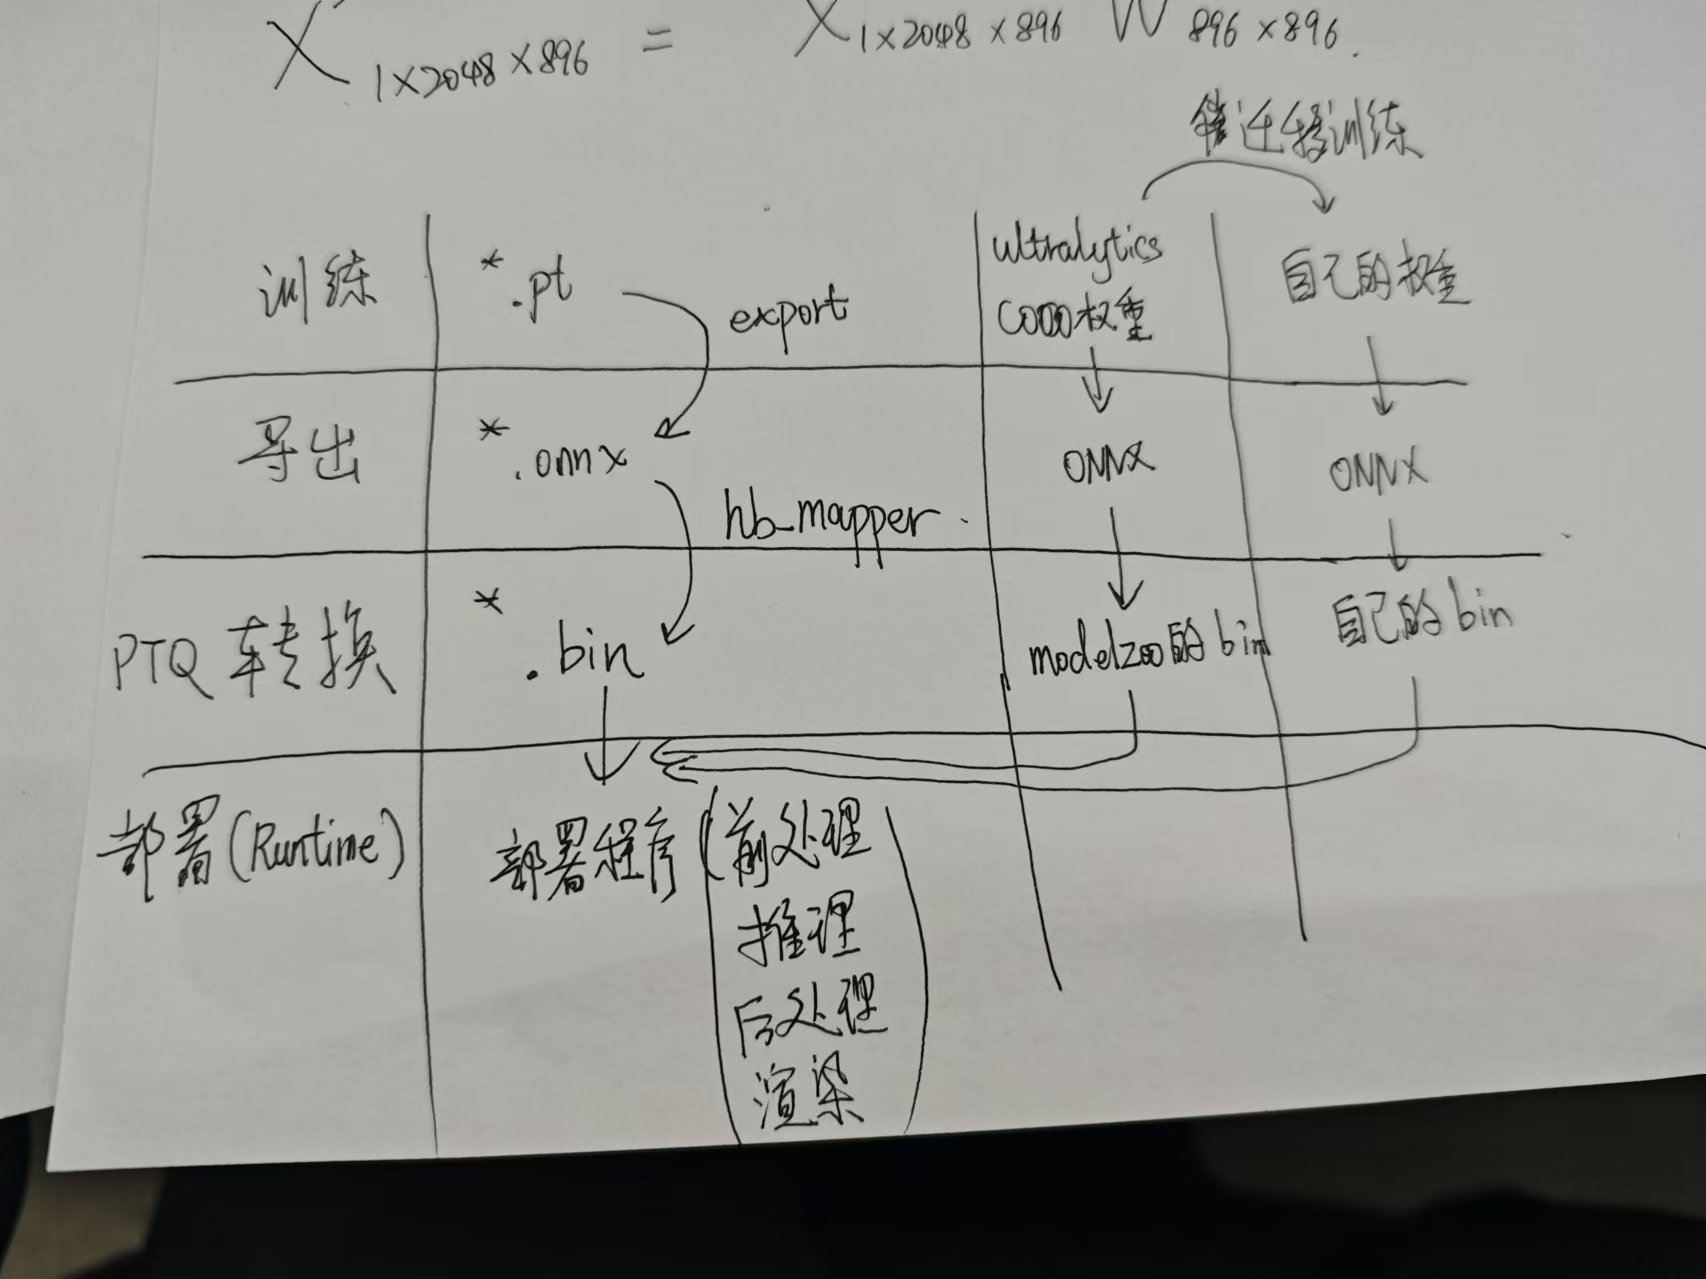 X 1×2048×896 = X 1×2048×896 W 896×896.
迁移训练
训练
*.pt
export
ultralytics
COCO权重
自己的权重
导出
*.onnx
hb_mapper
ONNX
ONNX
PTQ 转换
*.bin
modelzoo的bin
自己的bin
部署(Runtime)
部署程序(前处理
推理
后处理
渲染)